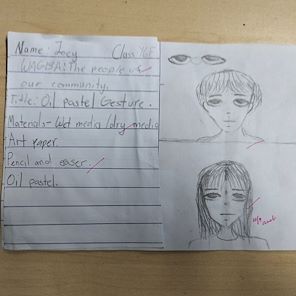 Name: Joey Class Y6F
WAGBA: The people of
our community.
Title: Oil pastel Gesture.
Materials- Wet media /dry media
Art paper.
Pencil and easer.
Oil pastel.